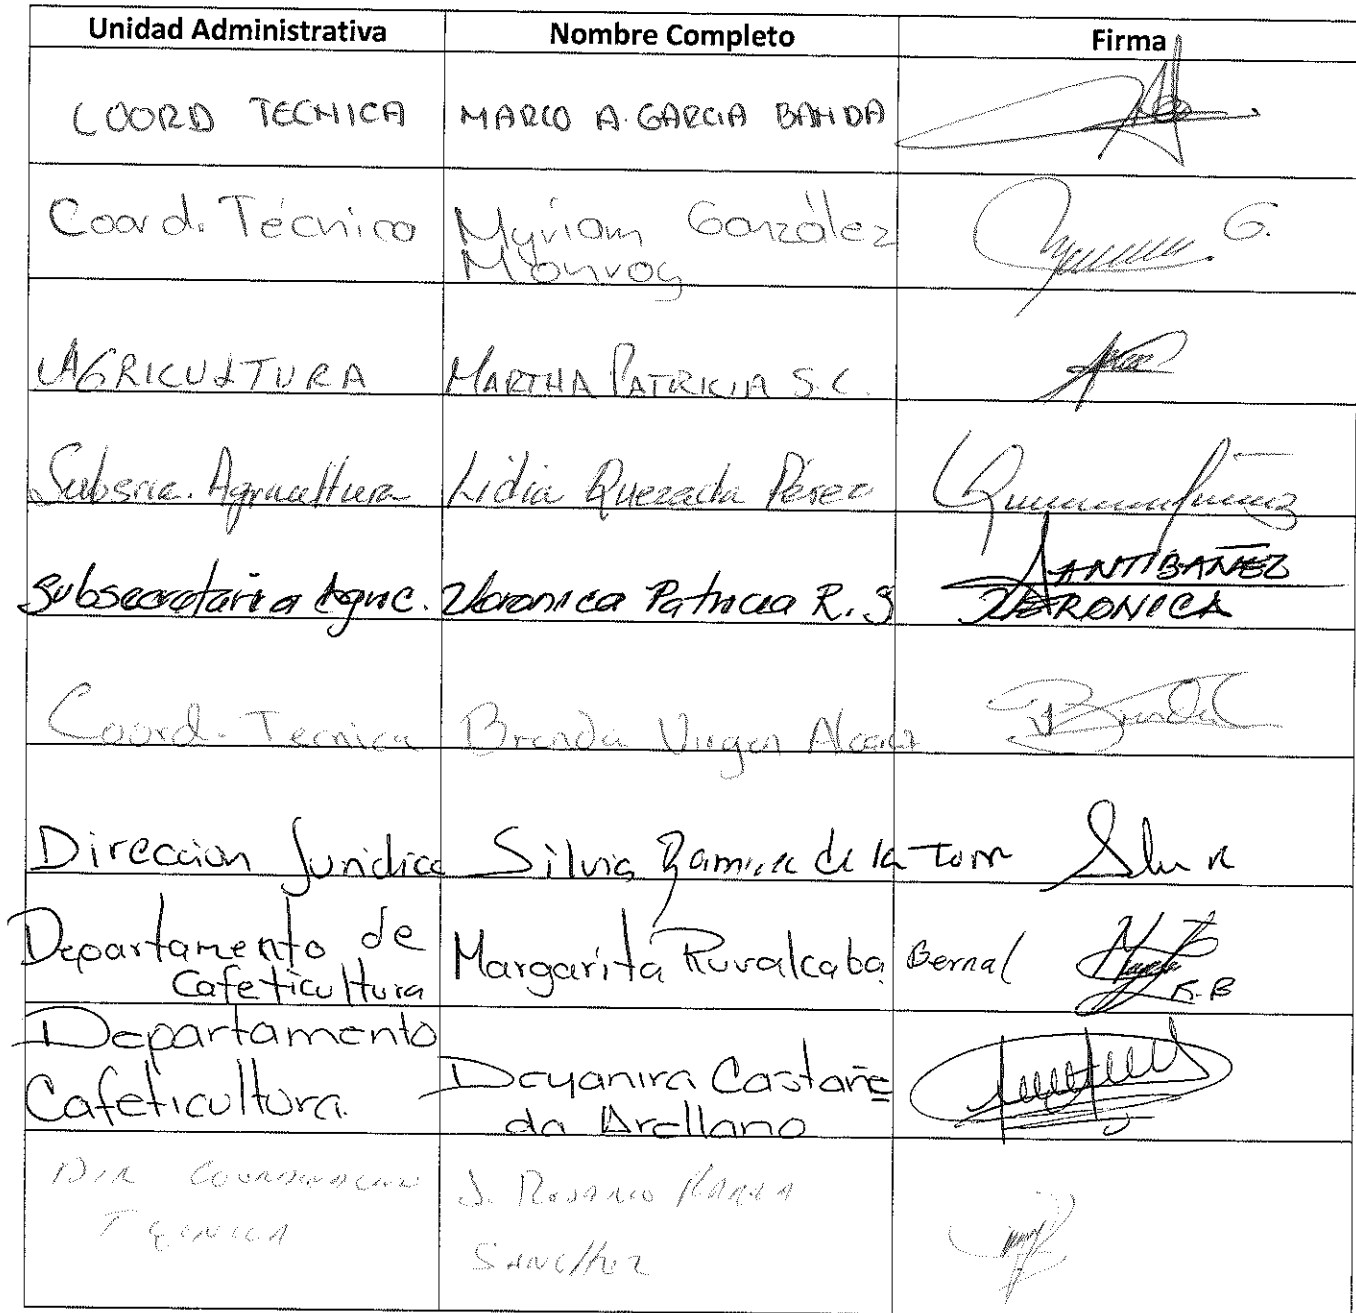 Unidad Administrativa Nombre Completo Firma
COORD TECNICA MARCO A. GARCIA BANDA
Coord. Técnica Myriam González G.
Monroy
AGRICULTURA MARTHA PATRICIA S.C.
Subsria. Agricultura Lidia Quezada Pérez
Subsecretaria Agric. Veronica Patricia R. S SANTIBAÑEZ
VERONICA
Coord. Tecnica Brenda Virgen Brenda
Direccion Juridica Silvia Ramirez de la Torre
Departamento de Margarita Ruvalcaba Bernal
Cafeticultura R.B
Departamento
Cafeticultura. Deyanira Castañe
da Arellano
DIR COORDINACION J. ROSARIO
TECNICA
SANCHEZ